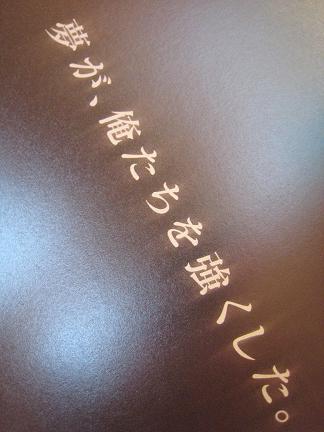 夢が、俺たちを強くした。